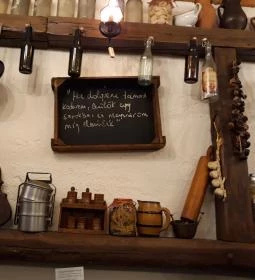 "Ha dolgozni támad
kedvem, leülök egy
sarokba és megvárom
míg elmúlik"